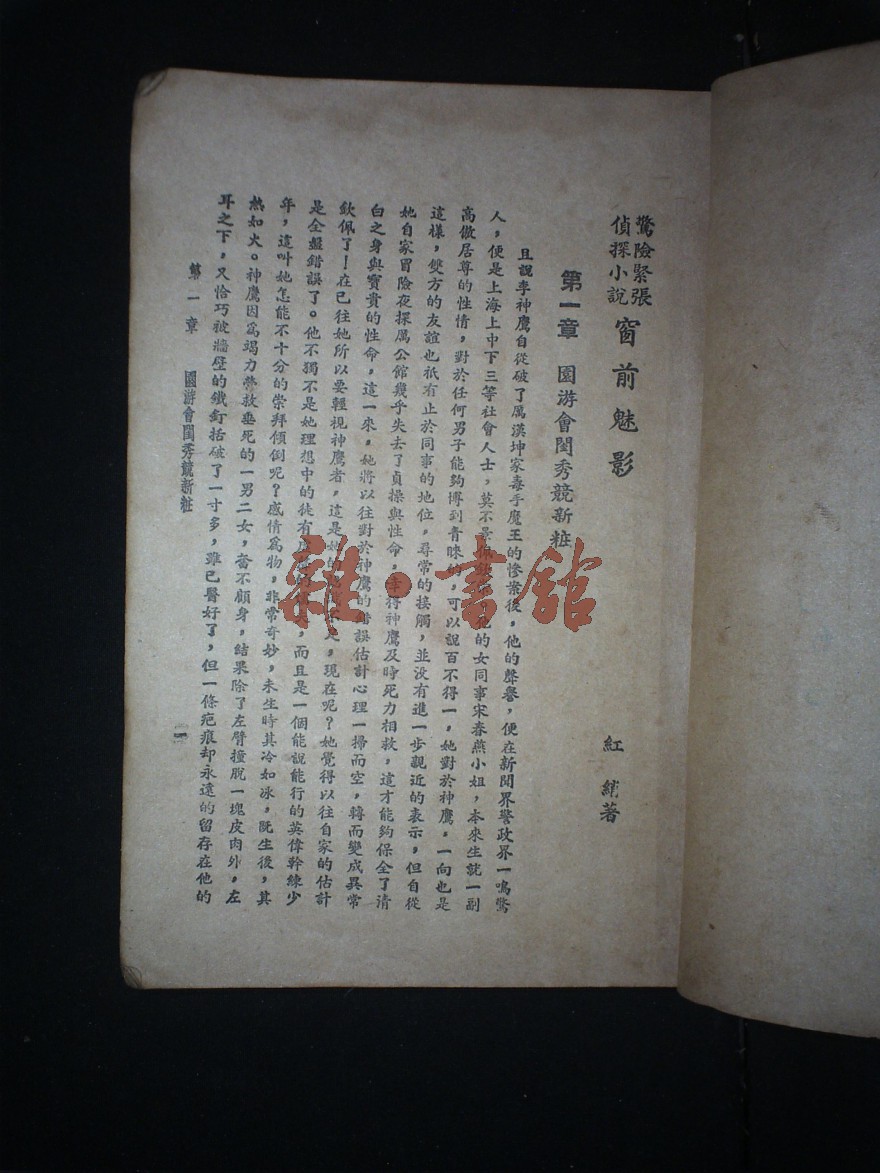 驚險緊張
偵探小說
窗前魅影
紅繡著
第一章 園游會閨秀競新粧
且說李神鷹自從破了厲漢坤家毒手魔王的慘案後，他的聲譽，便在新聞界警政界一鳴驚
人，便是上海上中下三等社會人士，莫不景 他的女同事宋春燕小姐，本來生就一副
高傲居尊的性情，對於任何男子能夠博到青睞的，可以說百不得一，她對於神鷹，一向也是
這樣，雙方的友誼也祇有止於同事的地位，尋常的接觸，並没有進一步親近的表示，但自從
她自家冒險夜探厲公館幾乎失去了貞操與性命，幸得神鷹及時死力相救，這才能夠保全了清
白之身與寶貴的性命，這一來，她將以往對於神鷹的錯誤估計心理一掃而空，轉而變成異常
欽佩了！在已往她所以要輕視神鷹者，這是她的 ，現在呢？她覺得以往自家的估計
是全盤錯誤了。他不獨不是她理想中的徒有虛 ，而且是一個能說能行的英偉幹練少
年，這叫她怎能不十分的崇拜傾倒呢？感情爲物，非常奇妙，未生時其冷如冰，旣生後，其
熱如火。神鷹因爲竭力營救垂死的一男二女，奮不顧身，結果除了左臂撞脫一塊皮肉外，左
耳之下，又恰巧被牆壁的鐵釘括破了一寸多，雖已醫好了，但一條疤痕却永遠的留存在他的
第一章 園游會閨秀競新粧
一
雜·書館